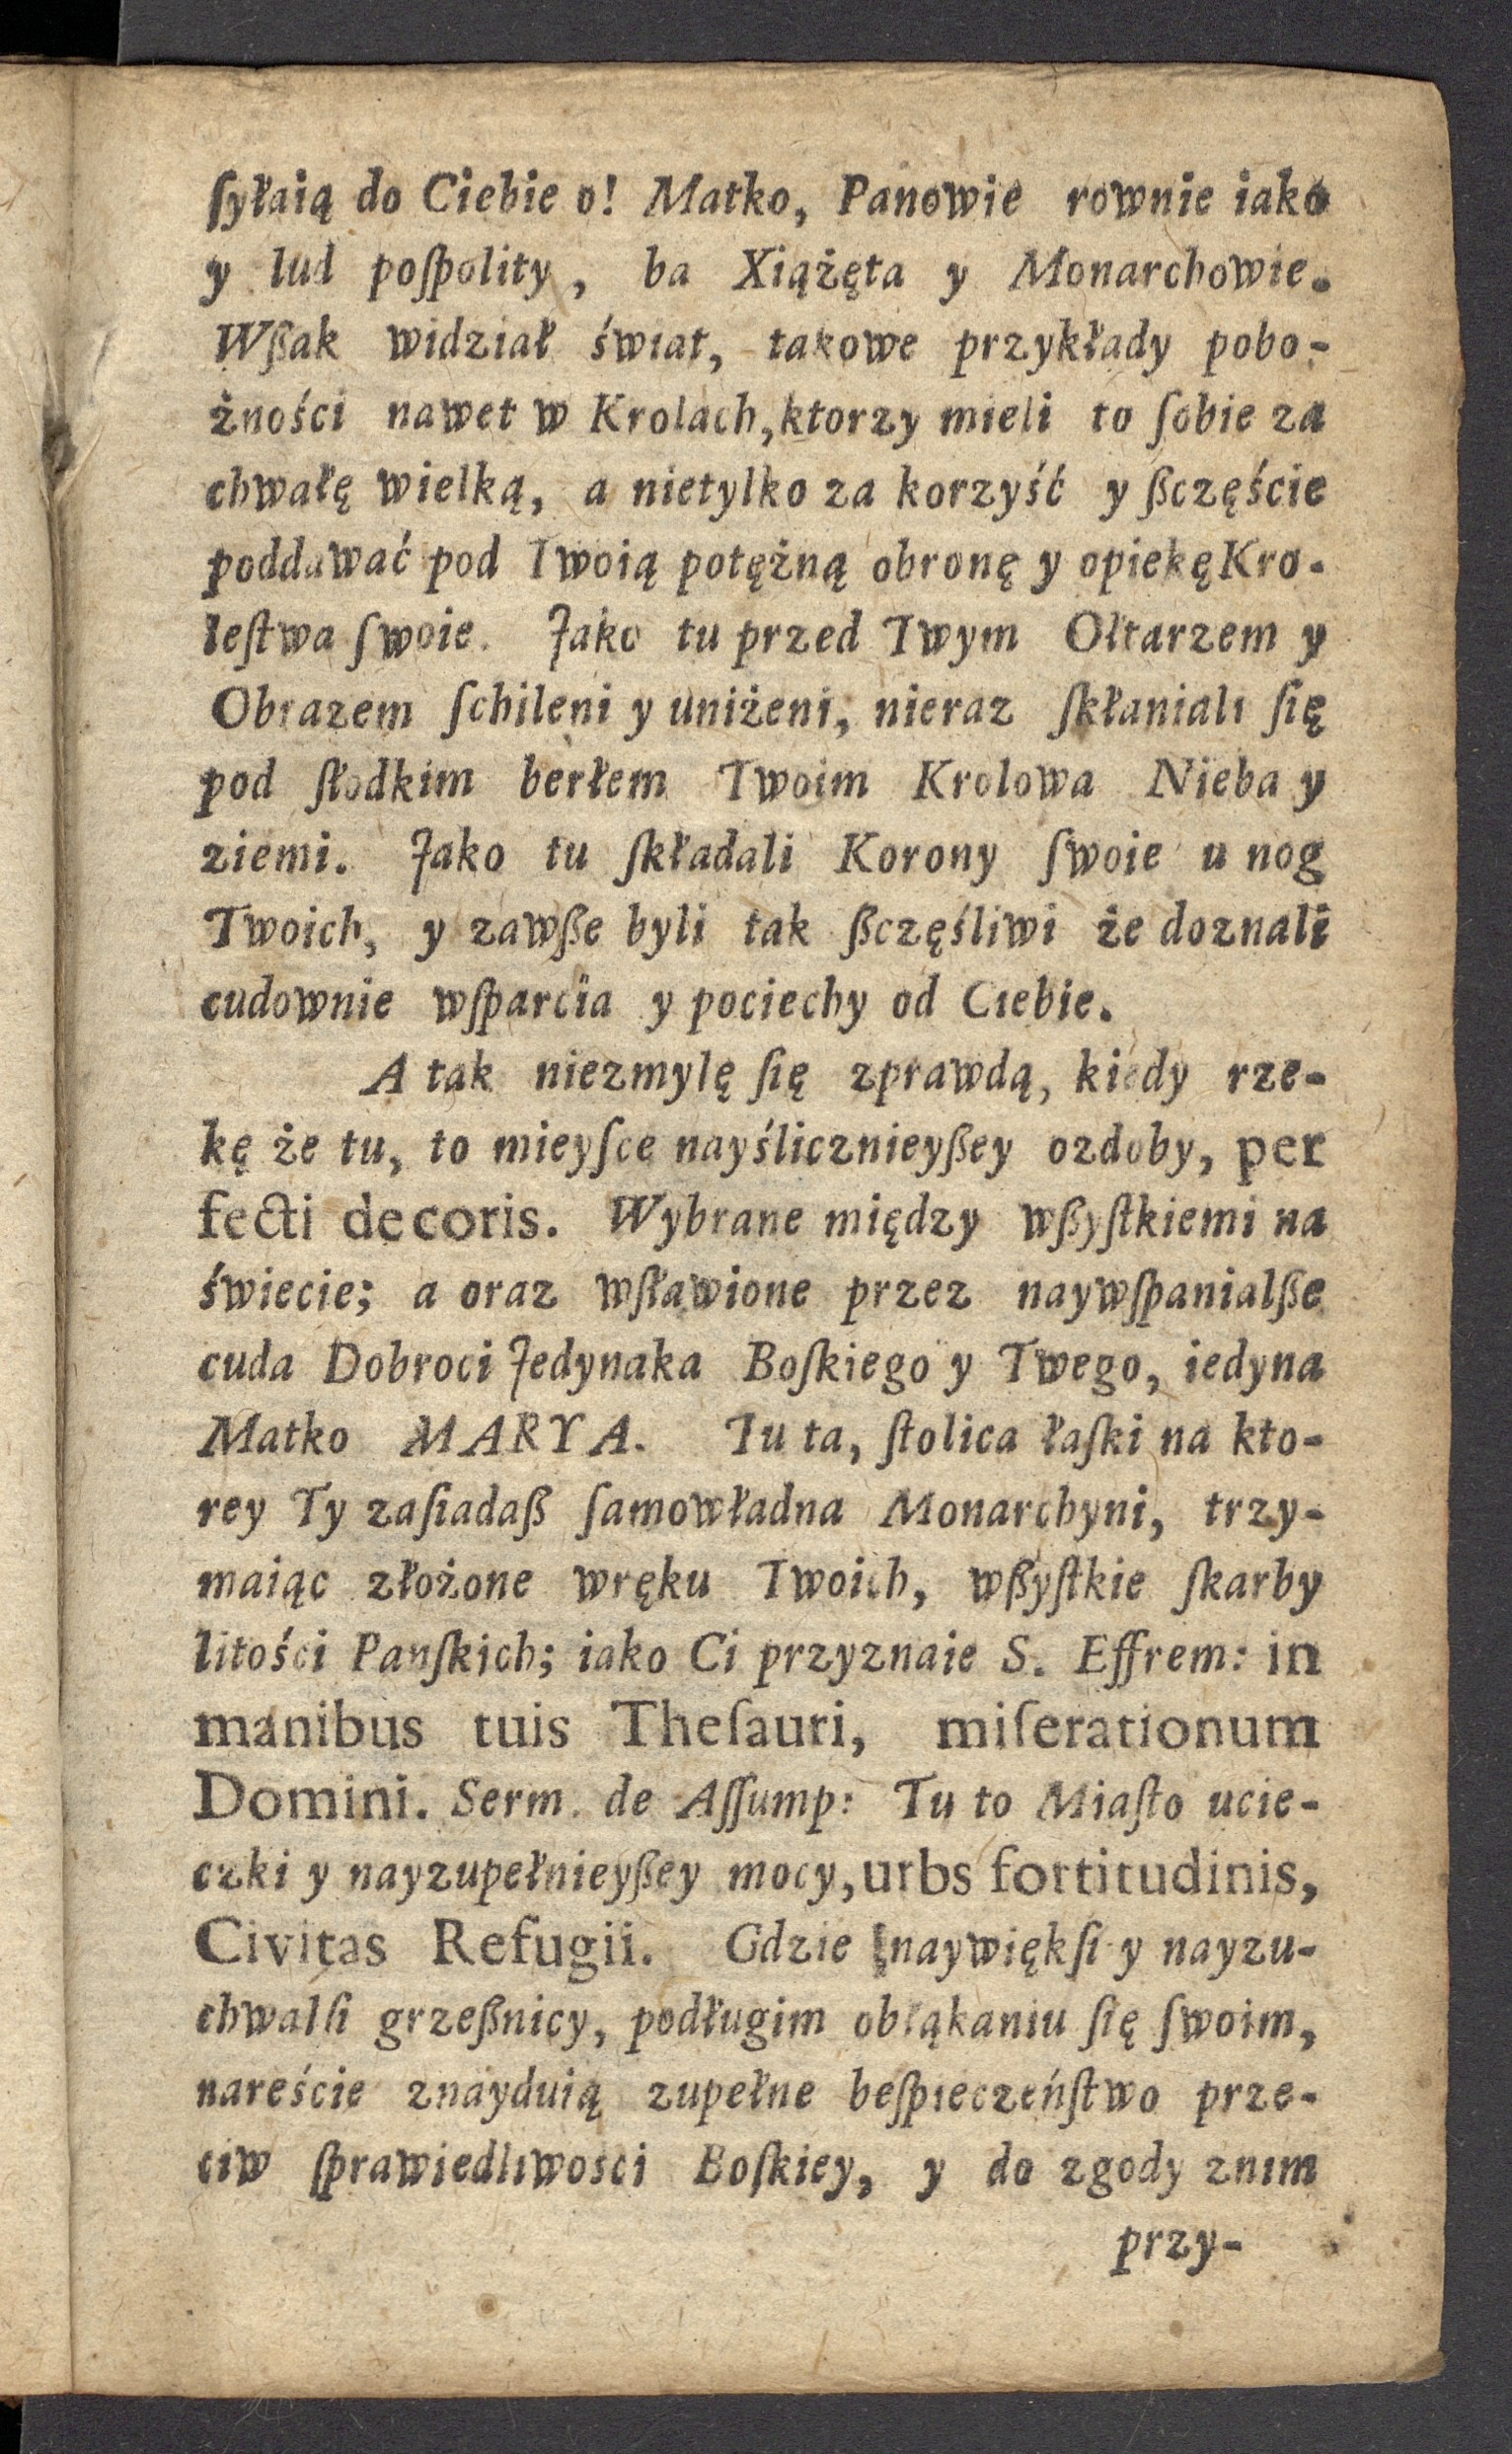 ſyłaią do Ciebie o! Matko, Panowie rownie iako
y lud poſpolity, ba Xiążęta y Monarchowie.
Wßak widział świat, takowe przykłady pobo-
żności nawet w Krolach, ktorzy mieli to ſobie za
chwałę wielką, a nietylko za korzyść y ßczęście
poddawać pod Twoią potężną obronę y opiekę Kro-
leſtwa ſwoie. Jako tu przed Twym Ołtarzem y
Obrazem ſchileni y uniżeni, nieraz ſkłaniali ſię
pod ſłodkim berłem Twoim Krolowa Nieba y
ziemi. Jako tu ſkładali Korony ſwoie u nog
Twoich, y zawße byli tak ßczęśliwi że doznali
cudownie wſparcia y pociechy od Ciebie.
A tak niezmylę ſię zprawdą, kiedy rze-
kę że tu, to mieyſce nayślicznieyßey ozdoby, per
fecti decoris. Wybrane między wßyſtkiemi na
świecie; a oraz wſławione przez naywſpanialße
cuda Dobroci Jedynaka Boſkiego y Twego, iedyna
Matko MARYA. Tu ta, ſtolica łaſki na kto-
rey Ty zaſiadaß ſamowładna Monarchyni, trzy-
maiąc złożone wręku Twoich, wßyſtkie ſkarby
litości Panſkich; iako Ci przyznaie S. Effrem: in
manibus tuis Theſauri, miſerationum
Domini. Serm. de Aſſump: Tu to Miaſto ucie-
czki y nayzupełnieyßey mocy, urbs fortitudinis,
Civitas Refugii. Gdzie naywiękſi y nayzu-
chwalſi grzeßnicy, podługim obłąkaniu ſię ſwoim,
nareście znayduią zupełne beſpieczeńſtwo prze-
ciw ſprawiedliwości Boſkiey, y do zgody znim
przy-